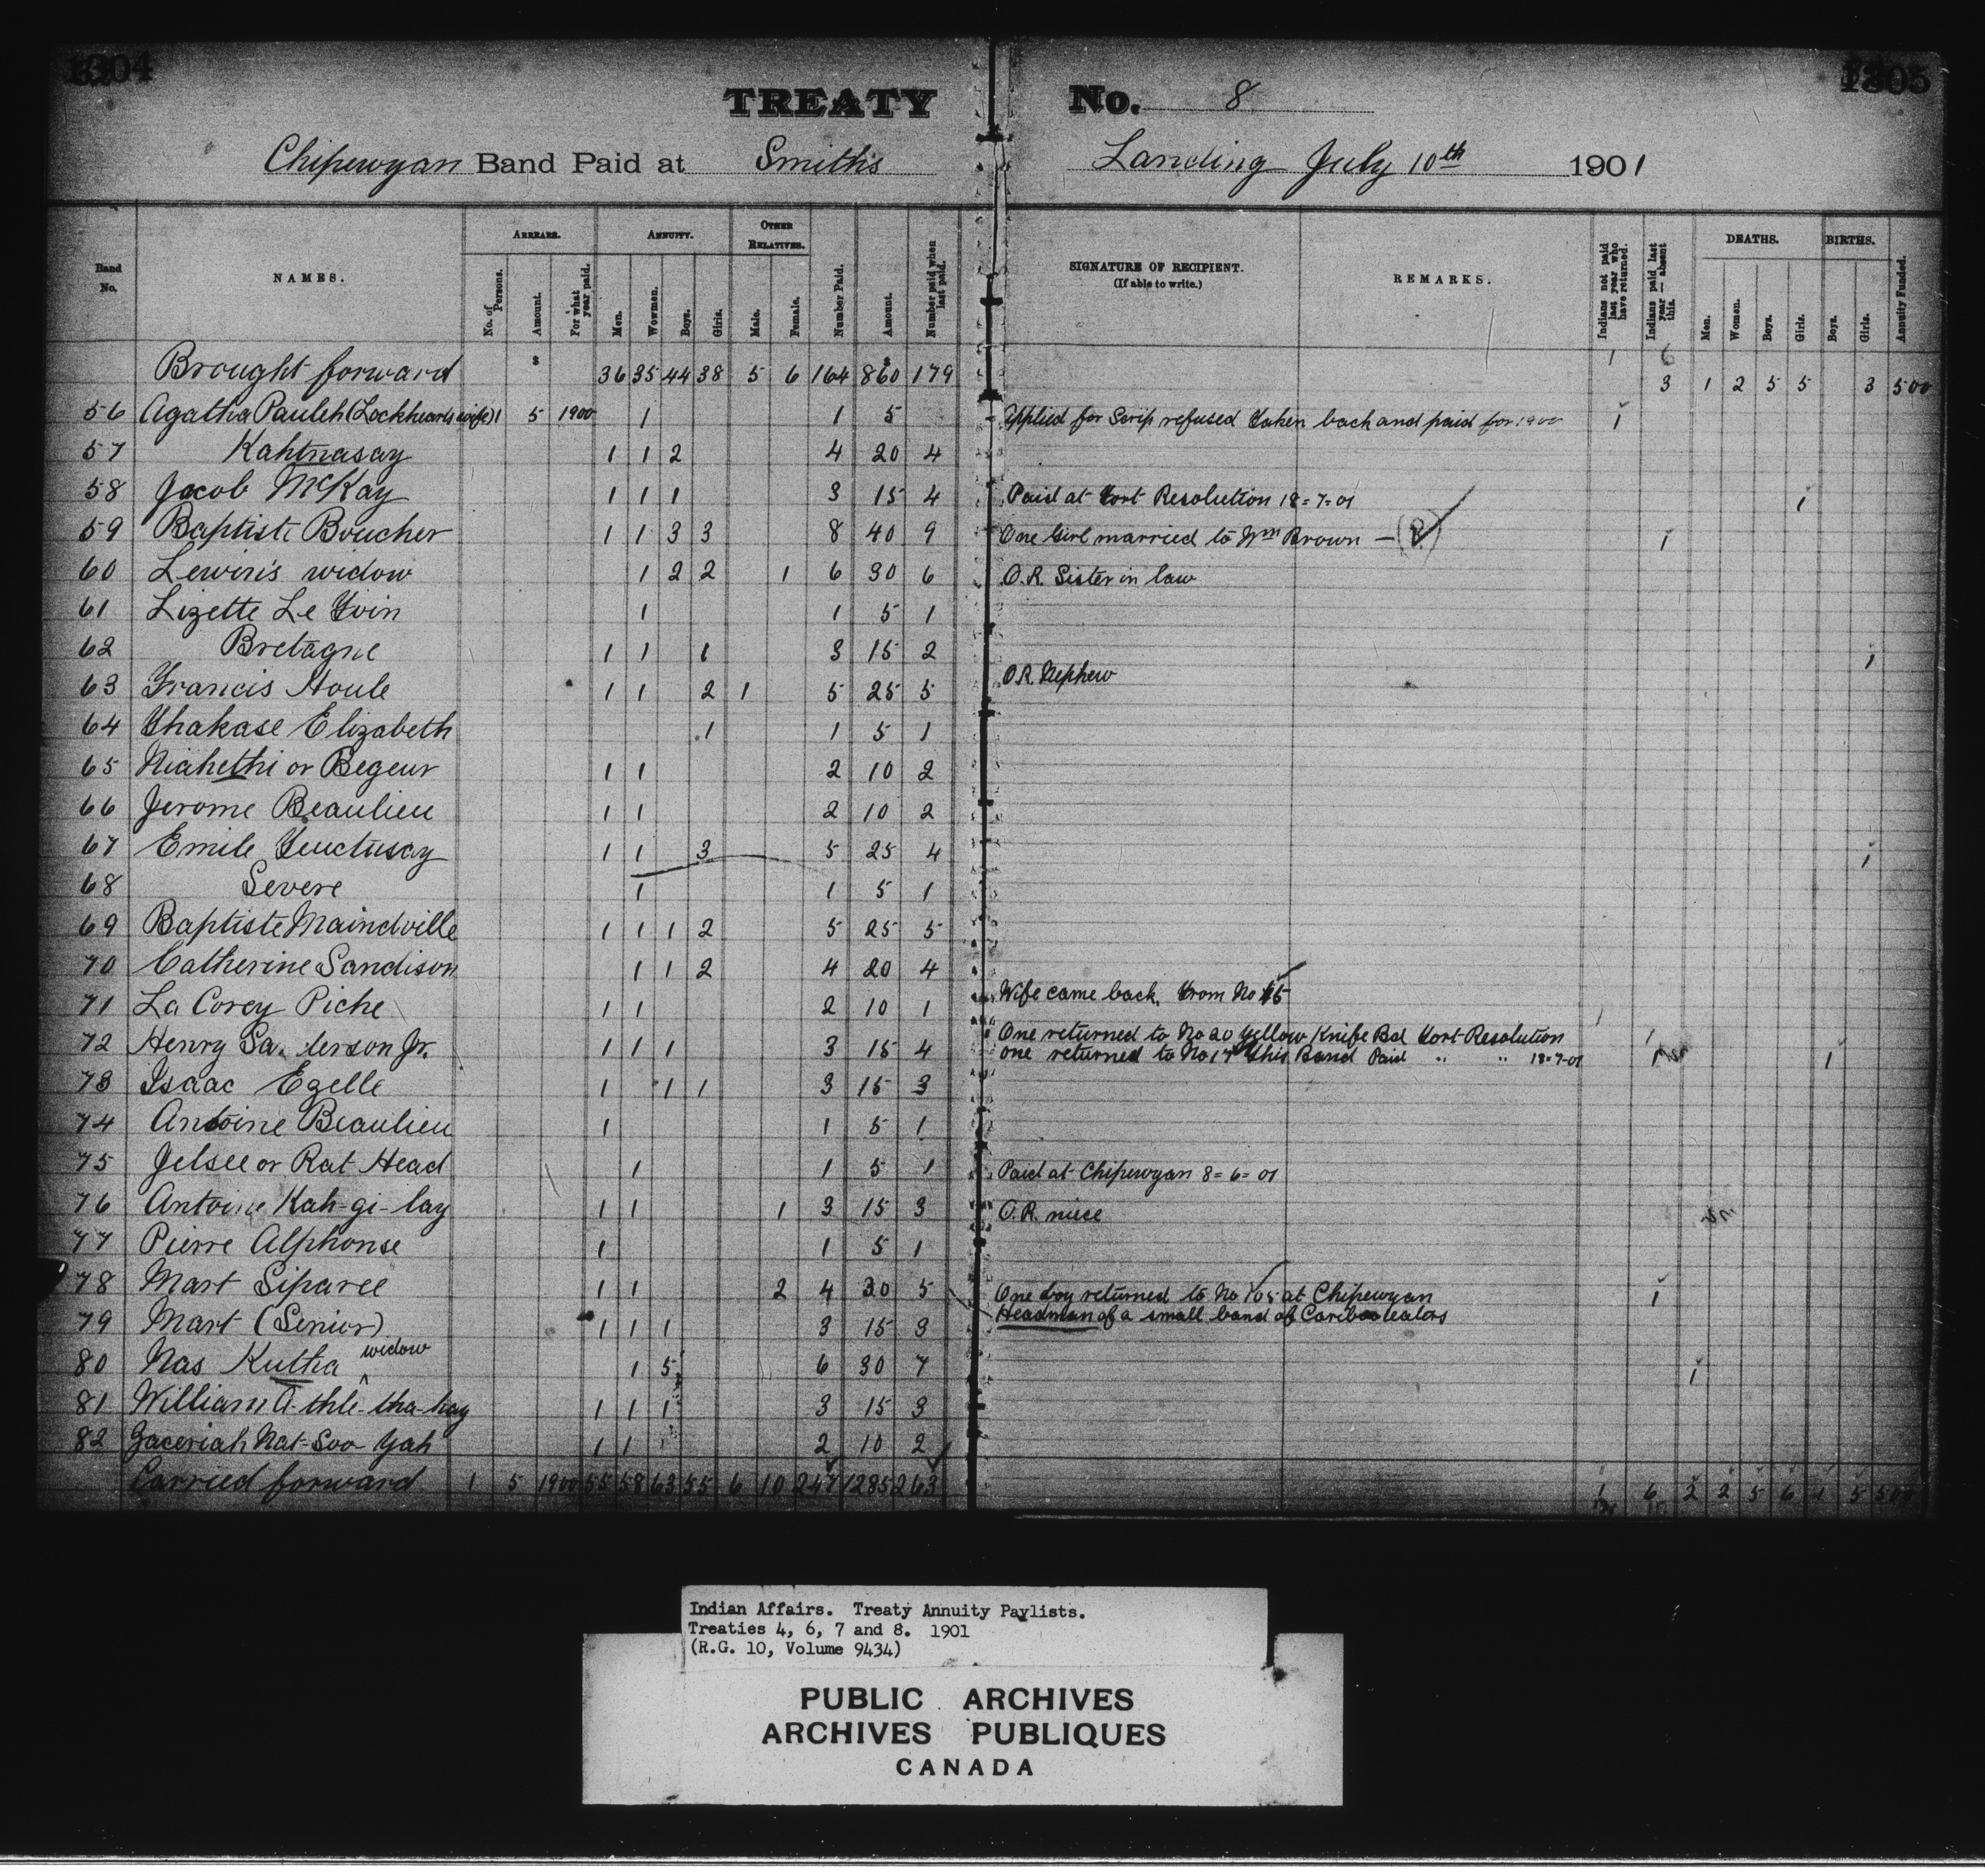 1304
1305
TREATY No. 8
Chipewyan Band Paid at Smith's Landing July 10th 1901
Band No.
NAMES.
ARREARS.
No. of Persons.
Amount.
For what year paid.
ANNUITY.
Men.
Women.
Boys.
Girls.
OTHER RELATIVES.
Male.
Female.
Number Paid.
Amount.
Number paid when last paid.
SIGNATURE OF RECIPIENT.
(If able to write.)
REMARKS.
Indians not paid last year who have returned.
Indians paid last year — absent this.
DEATHS.
Men.
Women.
Boys.
Girls.
BIRTHS.
Boys.
Girls.
Annuity Funded.
1 6
Brought forward $ 36 35 44 38 5 6 164 $ 860 179 3 1 2 5 5 3 500
56 Agatha Pauleh (Lockhearts wife) 1 5 1900 1 1 5 - Applied for Scrip refused Taken back and paid for 1900 1
57 Kahtnasay 1 1 2 4 20 4
58 Jacob McKay 1 1 1 3 15 4 Paid at Fort Resolution 18-7-01 1
59 Baptiste Boucher 1 1 3 3 8 40 9 One Girl married to Wm Brown — (?) 1
60 Lewin's widow 1 2 2 1 6 30 6 O.R. Sister in law
61 Lizette Le Foin 1 1 5 1
62 Bretagne 1 1 1 3 15 2 1
63 Francis Houle 1 1 2 1 5 25 5 O.R. Nephew
64 Thakase Elizabeth 1 1 5 1
65 Niahethi or Begeur 1 1 2 10 2
66 Jerome Beaulieu 1 1 2 10 2
67 Emile 1 1 3 5 25 4 1
68 Severe 1 1 5 1
69 Baptiste Maindville 1 1 1 2 5 25 5
70 Catherine Sandison 1 1 2 4 20 4
71 La Corey Piche 1 1 2 10 1 Wife came back. From No
One returned to No 20 Yellow Knife Bd Fort Resolution 1
72 Henry Sa derson Jr. 1 1 1 3 15 4 one returned to No 17 this Band Paid " " 18-7-01 1 1
73 Isaac Ezelle 1 1 1 3 15 3
74 Antoine Beaulieu 1 1 5 1
75 Jelsee or Rat Head 1 1 5 1 Paid at Chipewyan 8-6-01
76 Antoine Kah-gi-lay 1 1 1 3 15 3 O.R. niece
77 Pierre Alphonse 1 1 5 1
78 Mart Siparee 1 1 2 4 20 5 One boy returned to No 105 at Chipewyan 1
79 Mart (Senior) 1 1 1 3 15 3 Headman of a small band of Cariboo eaters
80 Nas Kutha widow 1 5 6 30 7 1
81 William A-thle-tha-hay 1 1 1 3 15 3
82 Zaceriah Nat-Soo-Yah 1 1 2 10 2
Carried forward 1 5 1900 55 58 63 55 6 10 247 1285 263 1 6 2 2 5 6 1 5 500
Indian Affairs. Treaty Annuity Paylists.
Treaties 4, 6, 7 and 8. 1901
(R.G. 10, Volume 9434)
PUBLIC ARCHIVES
ARCHIVES PUBLIQUES
CANADA